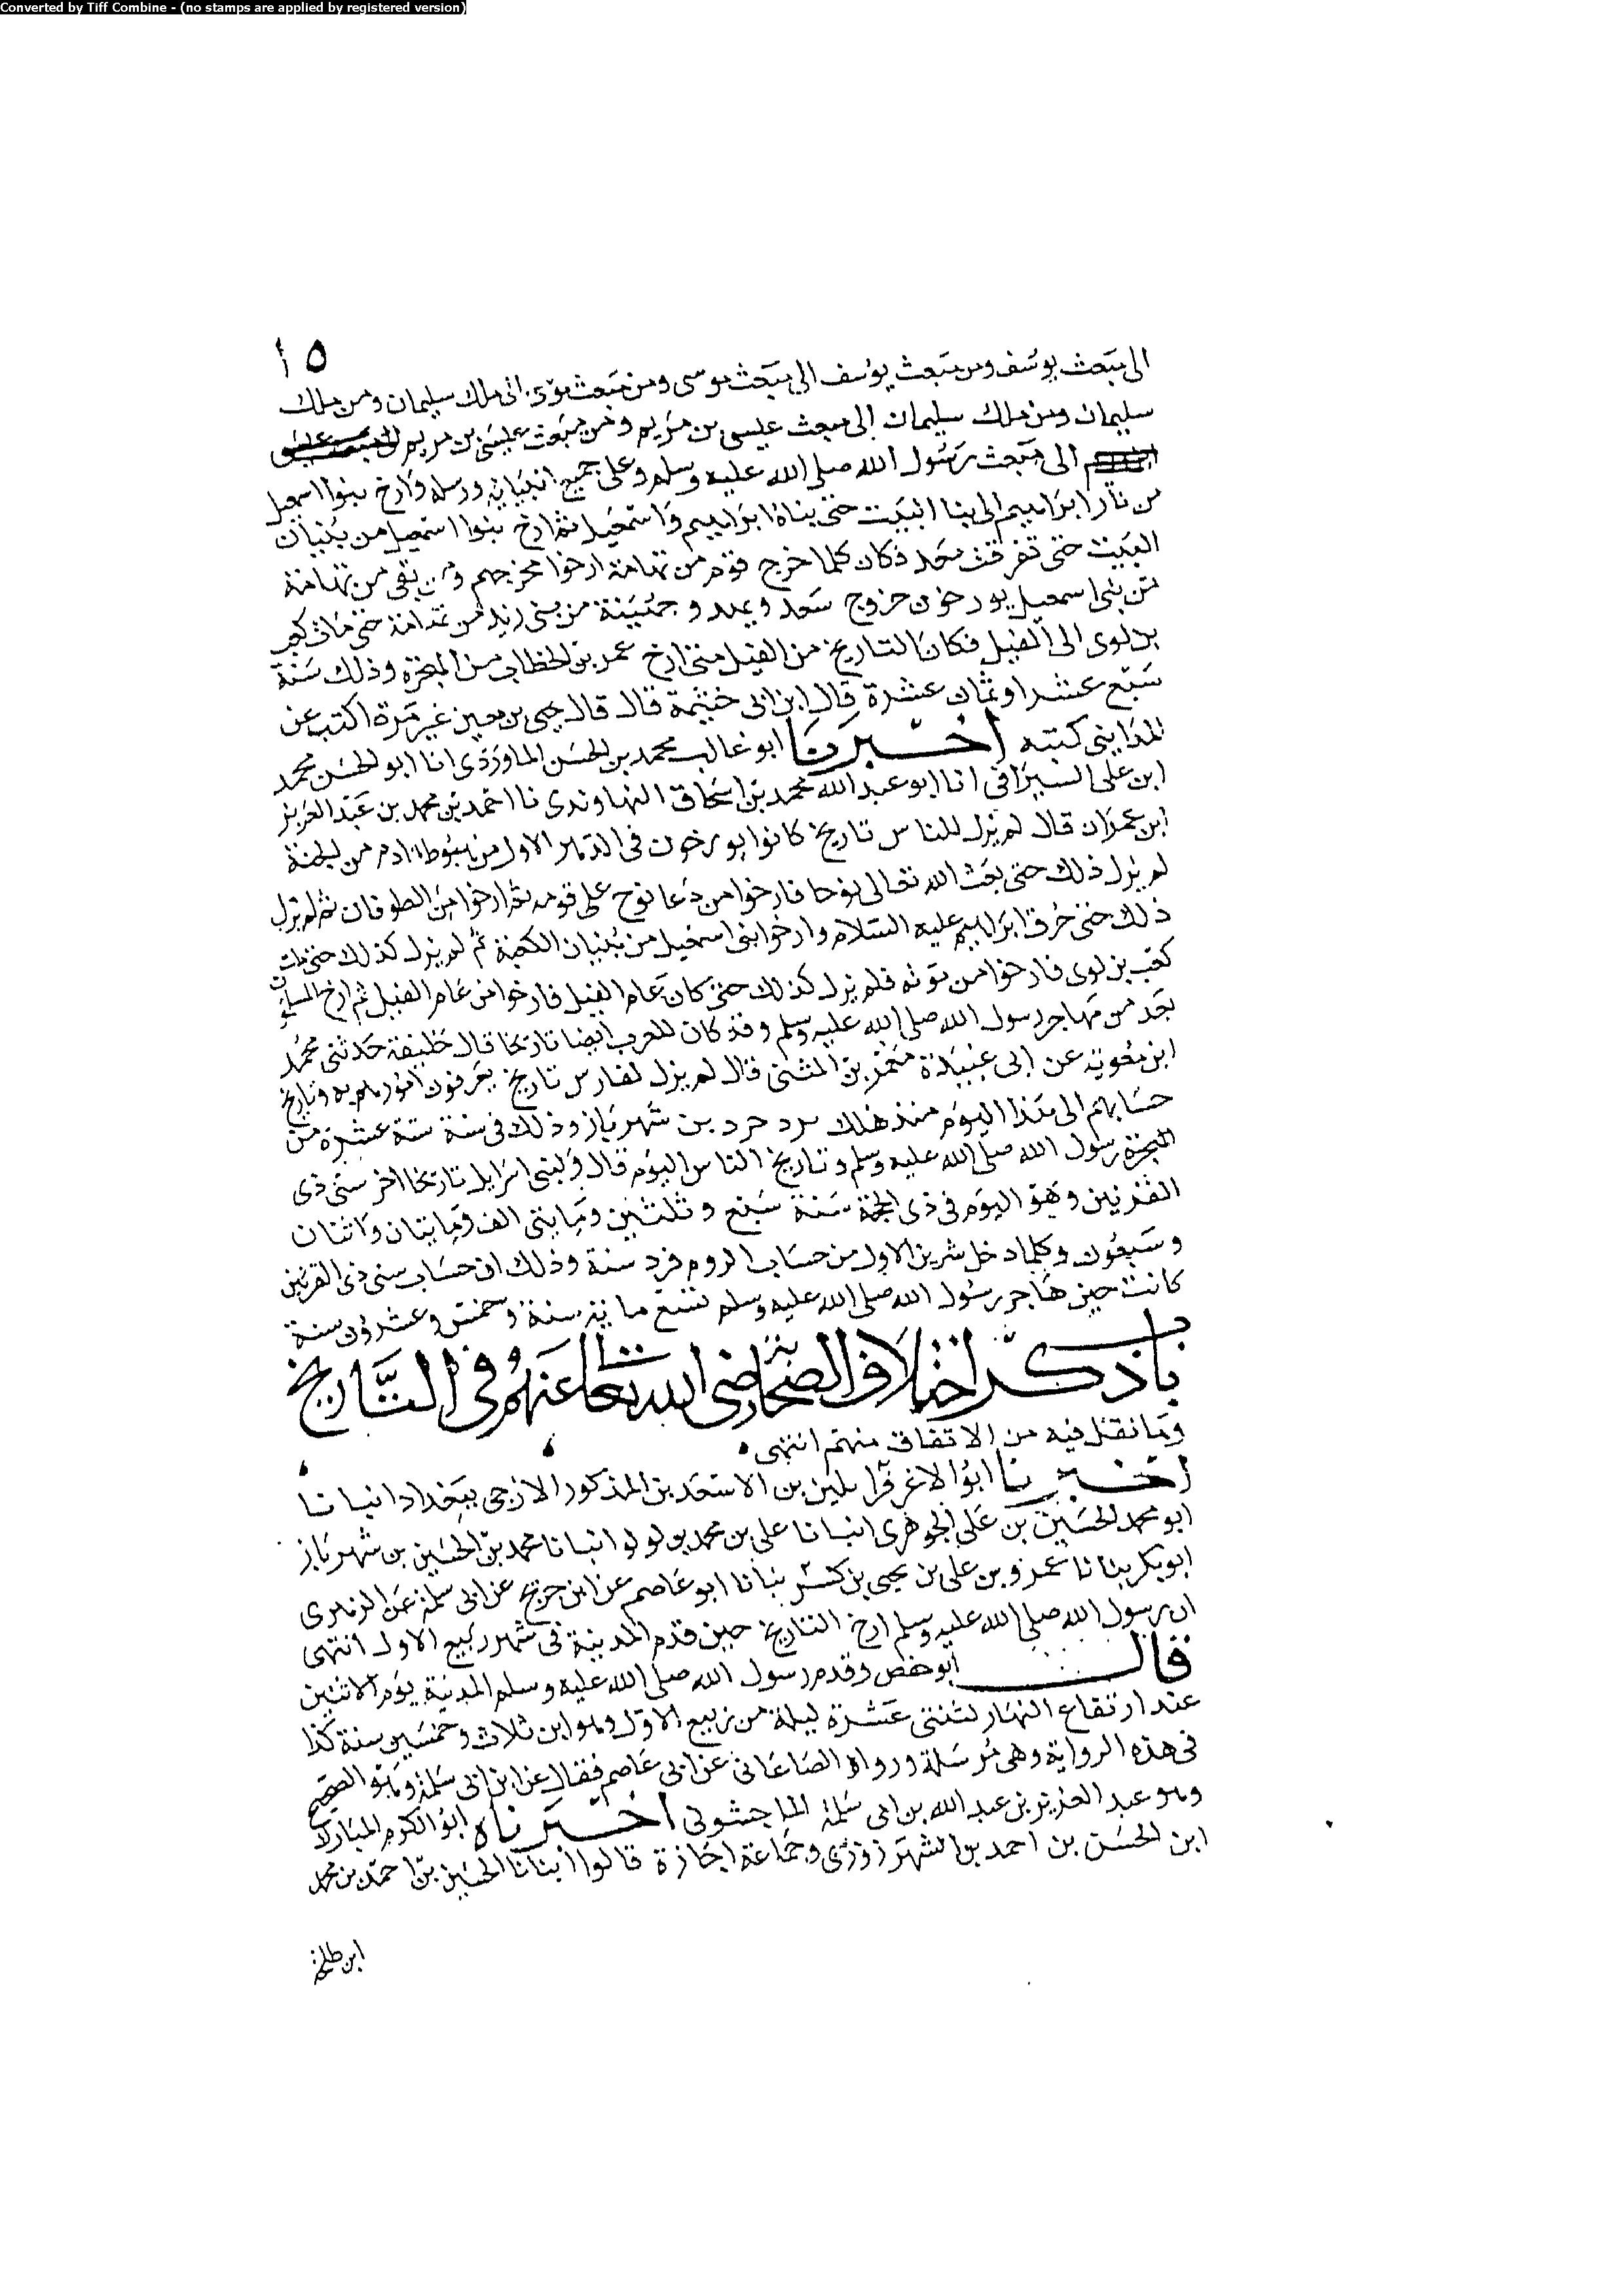 Converted by Tiff Combine - (no stamps are applied by registered version)
١٥
الى مبعث يوسف ومن مبعث يوسف الى مبعث موسى ومن مبعث موسى الى ملك سليمان ومن ملك
سليمان ومن ملك سليمان الى مبعث عيسى بن مريم ومن مبعث عيسى بن مريم
الى مبعث رسول الله صلى الله عليه وسلم وعلى جميع انبيائه ورسله وارخ بنوا اسمعيل
من نار ابراهيم الى بنا البيت حتى بناه ابراهيم واسمعيل ثم ارخ بنوا اسمعيل من بنيان
البيت حتى تفرقت معد فكان كلما خرج قوم من تهامة ارخوا مخرجهم ومن بقى من تهامة
من بنى اسمعيل يورخون خروج سعد ونهد وجهينة من بنى زيد من تهامة حتى مات كعب
بن لوى الى الفيل فكان التاريخ من الفيل حتى ارخ عمر بن الخطاب من الهجرة وذلك سنة
سبع عشر او ثمان عشرة قال ابن ابى خيثمة قال قال يحيى بن معين غير مرة اكتب عن
المداينى كتبه اخبرنا ابو غالب محمد بن الحسن الماوردى انا ابو الحسن محمد
ابن على السيرافى انا ابو عبد الله محمد بن اسحاق النهاوندى نا احمد بن محمد بن عبد العزيز
ابن عمران قال لم يزل للناس تاريخ كانوا يورخون فى الدهر الاول من هبوط ادم من الجنة
لم يزل ذلك حتى بعث الله تعالى نوحا فارخوا من دعا نوح على قومه ثم ارخوا من الطوفان ثم لم يزل
ذلك حتى حرق ابراهيم عليه السلام وارخوا بنى اسمعيل من بنيان الكعبة ثم لم يزل كذلك حتى مات
كعب بن لوى فارخوا من موته فلم يزل كذلك حتى كان عام الفيل فارخوا من عام الفيل ثم ارخ المسلمون
بعد من مهاجر رسول الله صلى الله عليه وسلم وقد كان للعرب ايضا تاريخا قال خليفة حدثنى محمد
ابن معوية عن ابى عبيدة معمر بن المثنى قال لم يزل لفارس تاريخ يعرفون امورهم به وتاريخ
حسابهم الى هذا اليوم منذ هلك يزد جرد بن شهريار وذلك فى سنة ستة عشرة من
الهجرة رسول الله صلى الله عليه وسلم وتاريخ الناس اليوم قال ولبنى اسرايل تاريخا اخر سنى ذى
القرنين وهو اليوم فى ذى الحجة سنة سبع وثلثين ومايتى الف ومايتان واثنان
وسبعون وكلما دخل تشرين الاول من حساب الروم فرد سنة وذلك ان حساب سنى ذى القرنين
كانت حين هاجر رسول الله صلى الله عليه وسلم تسع ماية سنة وخمس وعشرون سنة
باب ذكر اختلاف الصحابة رضى الله تعالى عنهم فى التاريخ
وما نقل فيه من الاتفاق منهم انتهى
اخبرنا ابو الاغر قراتكين بن الاسعد بن المذكور الازجى ببغداد انبانا
ابو محمد الحسين بن على الجوهرى انبانا على بن محمد بن لولو انبانا محمد بن الحسين بن شهريار
ابو بكر نبانا عمرو بن على بن يحيى بن كثير نبانا ابو عاصم عن ابن جريج عن ابى سلمة عن الزهرى
ان رسول الله صلى الله عليه وسلم ارخ التاريخ حين قدم المدينة فى شهر ربيع الاول انتهى
قال ابو حفص وقدم رسول الله صلى الله عليه وسلم المدينة يوم الاثنين
عند ارتفاع النهار لثنتى عشرة ليلة من ربيع الاول وهو ابن ثلاث وخمسين سنة كذا
فى هذه الرواية وهى مرسلة ورواه الصاغانى عن ابى عاصم فقال عن ابن ابى سلمة وهو الصحيح
وهو عبد العزيز بن عبد الله بن ابى سلمة الماجشونى اخبرناه ابو الكرم المبارك
ابن الحسن بن احمد بن الشهرزورى وجماعة اجازة قالوا انبانا الحسين بن احمد بن محمد
ابن طلحة